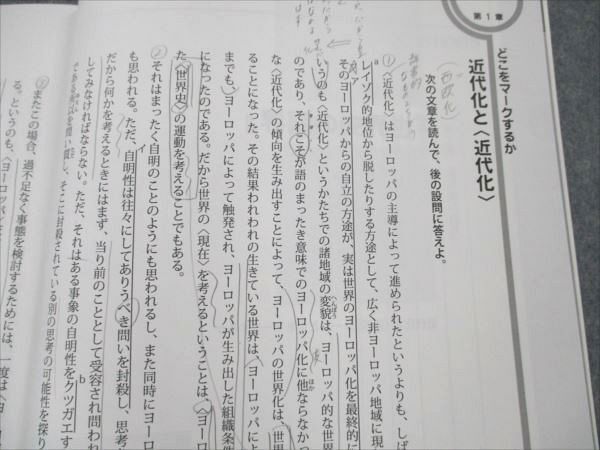 第1章
どこをマークするか
近代化と〈近代化〉
次の文章を読んで、後の設問に答えよ。
① 〈近代化〉はヨーロッパの主導によって進められたというよりも、しば
レイゾク的地位から脱したりする方途として、広く非ヨーロッパ地域に現
a
そのヨーロッパからの自立の方途が、実は世界のヨーロッパ化を最終的に
ア
いうのも〈近代化〉というかたちでの諸地域の変貌は、ヨーロッパ的な世界
へんぼう
のであり、それこそが語のまったき意味でのヨーロッパ化に他ならなかっ
ほか
な〈近代化〉の傾向を生み出すことによって、ヨーロッパの世界化は、世界
ることになった。その結果われわれの生きている世界は〈ヨーロッパによ
までも〉、ヨーロッパによって触発され、ヨーロッパが生み出した組織条件
になったのである。だから世界の〈現在〉を考えるということは、〈ヨーロ
た〈世界史〉の運動を考えることでもある。
② それはまったく自明のことのようにも思われるし、また同時にヨーロ
も思われる。ただ、自明性は往々にしてありうべき問いを封殺し、思考
イ
だから何かを考えるときにはまず、当り前のこととして受容され問われ
してみなければならない。ただ、それはある事象の自明性をクツガエす
b
し、そこに封殺されている別の思考の可能性を探り
③ またこの場合、過不足なく事態を検討するためには、一度は〈ヨー
る。というのも、〈ヨーロッパ